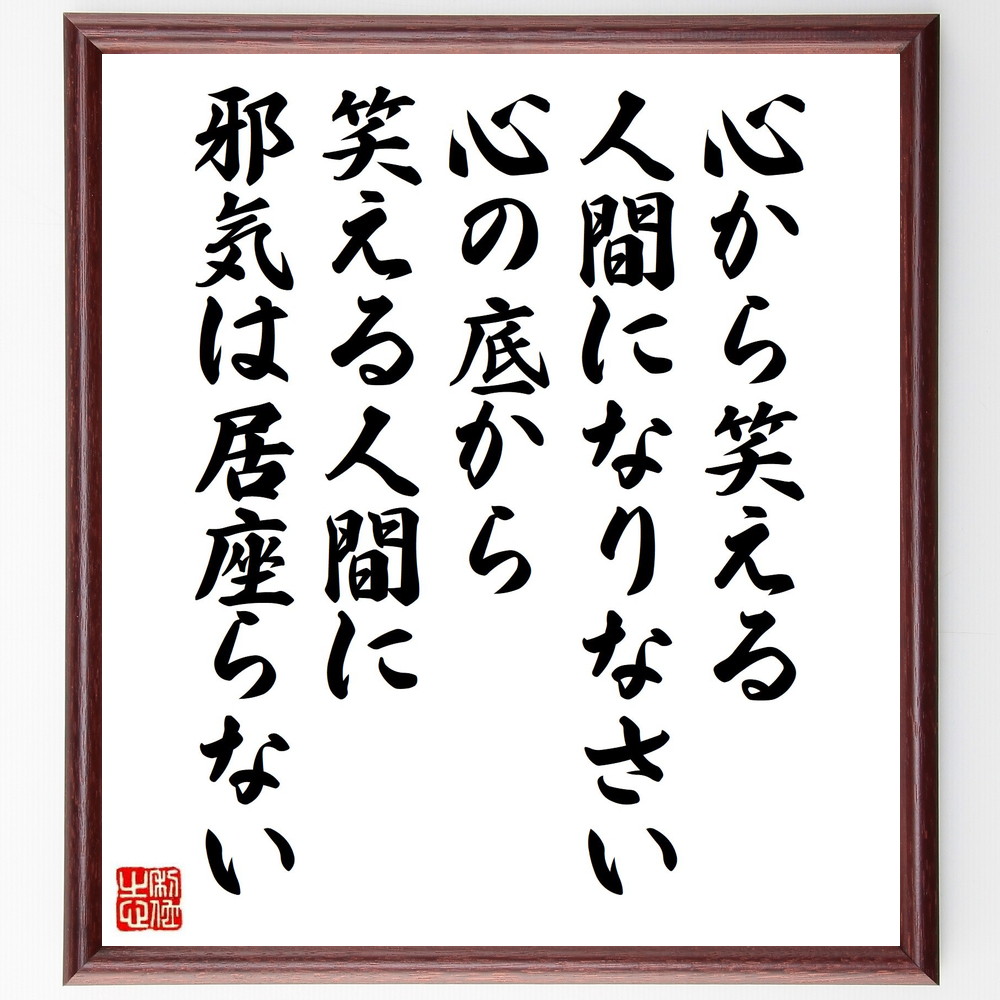 心から笑える
人間になりなさい
心の底から
笑える人間に
邪気は居座らない